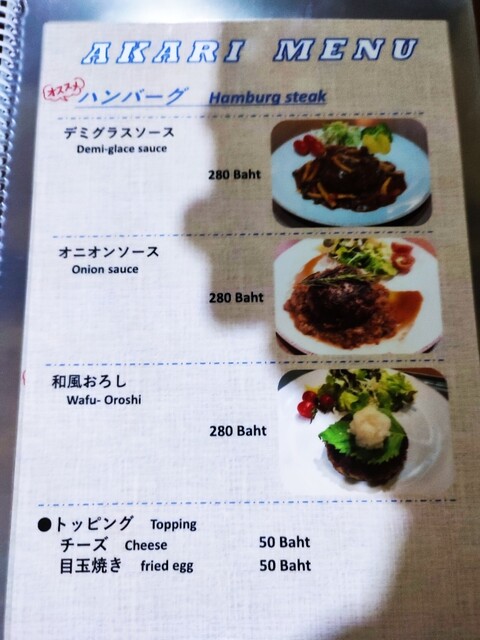 AKARI MENU
オススメ
ハンバーグ Hamburg steak
デミグラスソース
Demi-glace sauce
280 Baht
オニオンソース
Onion sauce
280 Baht
和風おろし
Wafu- Oroshi
280 Baht
●トッピング Topping
チーズ Cheese 50 Baht
目玉焼き fried egg 50 Baht